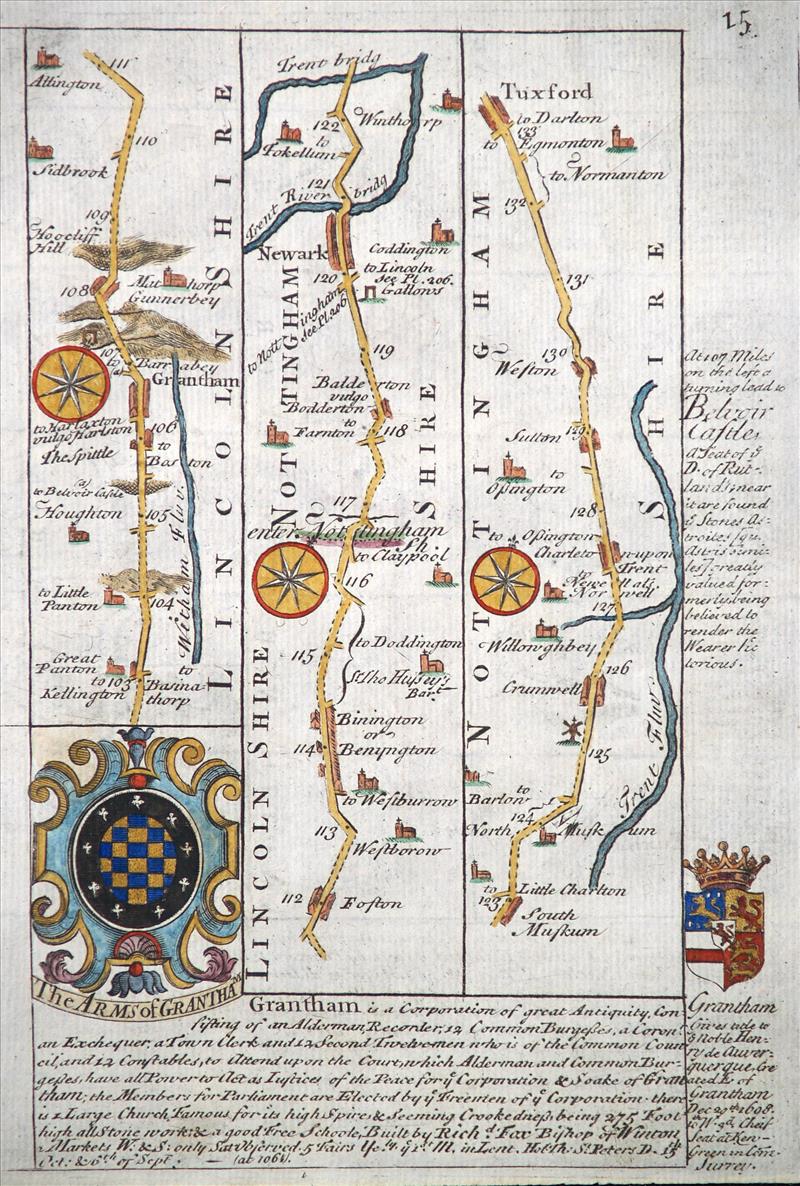 15.
111
Allington
110
Sidbrook
109
Hogcliff
Hill
Man thorp
108
Gunnerbey
107
to Barr abey
Grantham
to Harlaxton
vulgo Harlston
106
The Spittle
to
Bas ton
(a)
to Belvoir Castle
Houghton
105
to Little
Panton
104
Witham Fluv.
Great
Panton
to
Kellington
103
to
Basina
thorp
LINCOLN SHIRE
The ARMS of GRANTHAM
Trent bridg
122
Winthorp
to
Fokellum
121
Trent River bridg
Newark
Coddington
to Lincoln
See Pl. 206.
120
Gallows
to Nott ingham
see Pl. 206
119
Balde rton
vulgo
Bodderton
to
Farnton
118
117
enter Nottingham
Sh
to Claypool
116
to Doddington
115
Sr. Tho Hussey's
Bart.
Binington
or
114
Benyngton
to Westburrow
113
Westborow
112
Foston
NOTTINGHAM SHIRE
LINCOLN SHIRE
Tuxford
to Darlton
133
to Egmonton
to Normanton
132
131
130
Weston
129
Sutton
to
Ossington
128
to Ossington
Charleto n upon
Trent
to
Newe ll als.
Nor well
127
Willoughbey
126
Crumwell
125
to
Barlow
124
North Musk um
Trent Fluv.
to
Little Charlton
123
South
Muskum
NOTTINGHAM SHIRE
At 107 Miles
on the left a
turning lead to
Belvoir
Castle,
A Seat of ye
D. of Rut-
land; near
it are found
ye Stones As-
troites (qu.
Astris simi-
les) ready
valued for-
merly, being
believed to
render the
Wearer Vic
torious.
Grantham is a Corporation of great Antiquity, Con-
sisting of an Alderman, Recorder, 12 Common Burgesses, a Coron
an Exchequer, a Town Clerk and 12 Second Twelvemen who is of the Common Coun
cil, and 12 Constables, to Attend upon the Court, which Alderman and Common Bur-
gesses, have all Power to Act as Justices of the Peace for ye Corporation & Soake of Gran
tham; the Members for Parliament are Elected by ye Freemen of ye Corporation. there
is 1 Large Church, Famous for its high Spire & Seeming Crookedness, being 275 Foot
high all Stone work; & a good Free Schoole, Built by Richd. Fox Bishop of Winton
2 Markets W. & S: only Sat Observed. 5 Fairs Ye ye 1st M, in Lent. Hol: Th: St. Peters D. 15th
Oct: & 6th of Sept. (at 106)
Grantham
Gives title to
ye Noble Hen-
ry de Auver-
querque, Cre
ated E. of
Grantham
Dec 29th 1698.
to Wm. 3d. Cheif
Seat at Ken-
Green in Com.
Surrey.